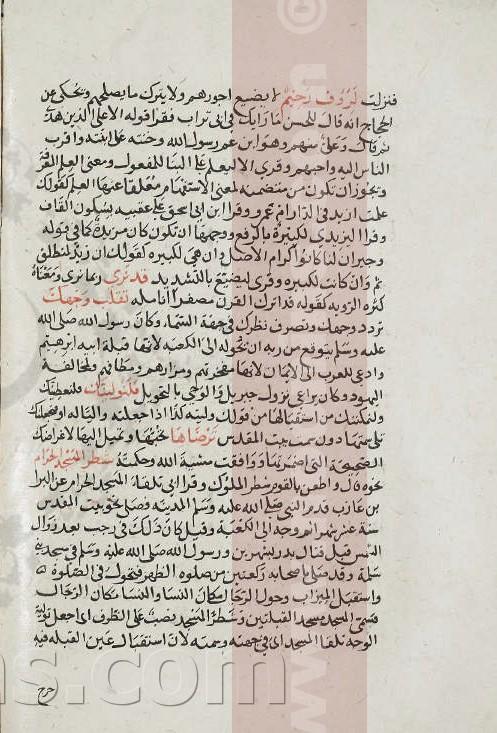 فنزلت لرؤف رحيم لا يضيع اجورهم ولا يترك ما يصلحهم ويحكى عن
الحجاج انه قال للحسن ما رايك فى ابى تراب فقرا قوله الا على الذين هدى
ثم قال وعلى منهم وهو ابن عم رسول الله وختنه على ابنته واقرب
الناس اليه واحبهم وقرى الا ليعلم على البنا للمفعول ومعنى العلم المعرفة
ويجوز ان تكون من متضمنه لمعنى الاستفهام معلقا عنها العلم كقولك
علمت ازيد فى الدار ام عمرو وقرا ابن ابى اسحق على عقبيه بسكون القاف
وقرا اليزيدى لكبيرة بالرفع ووجهها ان تكون كان مزيدة كما فى قوله
وجيران لنا كانوا كرام الاصل وان هى لكبيره كقولك ان زيد لمنطلق
ثم وان كانت لكبيره وقرى ليضيع بالتشديد قد نرى ربما نرى ومعناه
كثره الرويه كقوله قد اترك القرن مصفرا انامله تقلب وجهك
تردد وجهك وتصرف نظرك فى جهة السماء وكان رسول الله صلى الله
عليه وسلم يتوقع من ربه ان يحوله الى الكعبة لانها قبلة ابيه ابرهيم
وادعى للعرب الى الايمان لانها مفخرتهم ومزارهم ومطافهم ولمخالفة
اليهود وكان يراعى نزول جبريل والوحى بالتحويل فلنولينك فلنعطينك
ولنمكننك من استقبالها من قولك وليته كذا اذا جعلته واليا له او فلنجعلنك
تلى سمتها دون سمت بيت المقدس ترضاها تحبها وتميل اليها لاغراضك
الصحيحة التى اضمرتها ووافقت مشية الله وحكمته شطر المسجد الحرام
نحوه قال واطعن بالقوم شطر الملوك وقرا ابى تلقاء المسجد الحرام عن البرا
بن عازب قدم النبى صلى الله عليه وسلم المدينه فصلى نحو بيت المقدس
ستة عشر شهرا ثم وجه الى الكعبة وقيل كان ذلك فى رجب بعد زوال
الشمس قبل قتال بدر بشهرين ورسول الله صلى الله عليه وسلم فى مسجد بنى
سلمة وقد صلى باصحابه ركعتين من صلوه الظهر فتحول فى الصلوة
واستقبل الميزاب وحول الرجال مكان النسا والنسا مكان الرجال
فسمى المسجد مسجد القبلتين وشطر المسجد نصب على الظرف اى اجعل تولية
الوجه تلقا المسجد اى فى جهته وسمته لان استقبال عين القبله فيه
حرج